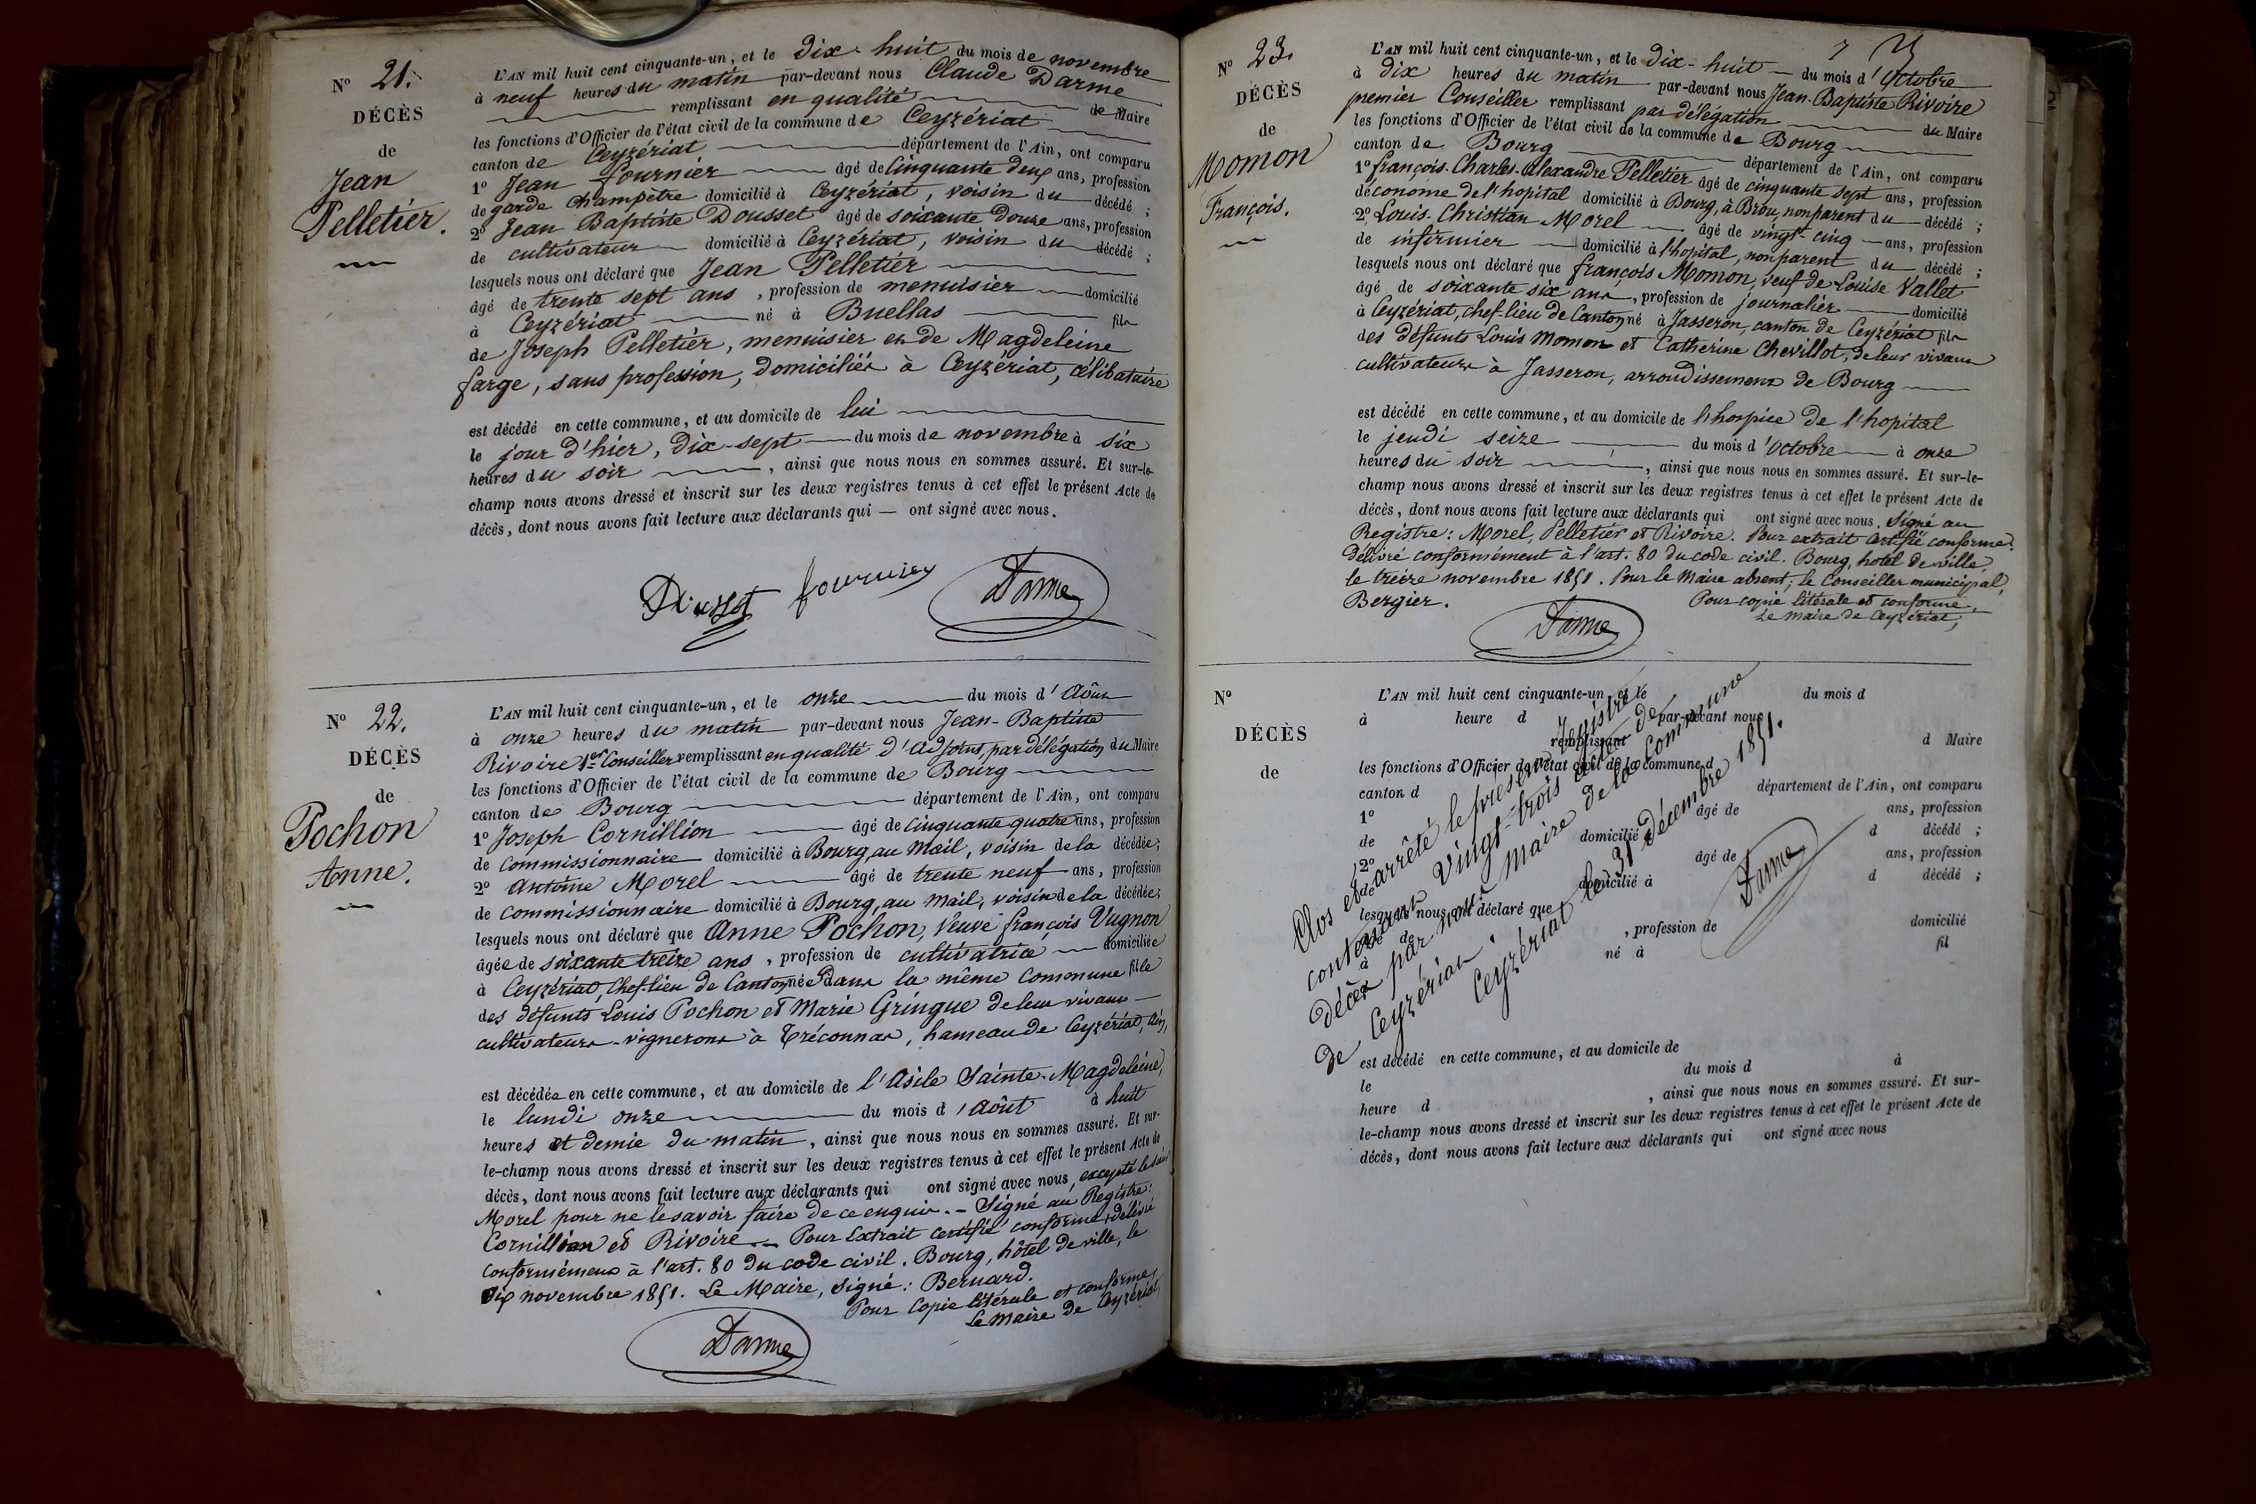 N° 21.
DÉCÈS
de
Jean
Pelletier.
L'AN mil huit cent cinquante-un, et le Dix-huit du mois de novembre
à neuf heures du matin par-devant nous Claude Darme
remplissant en qualité de Maire
les fonctions d'Officier de l'état civil de la commune de Ceyzériat
canton de Ceyzériat département de l'Ain, ont comparu
1° Jean fournier âgé de Cinquante deux ans, profession
de garde champêtre domicilié à Ceyzériat, voisin du décédé ;
2° Jean Baptiste Dousset âgé de soixante douze ans, profession
de cultivateur domicilié à Ceyzériat, voisin du décédé ;
lesquels nous ont déclaré que Jean Pelletier
âgé de trente sept ans, profession de menuisier domicilié
à Ceyzériat né à Buellas fils
de Joseph Pelletier, menuisier et de Magdeleine
farge, sans profession, domiciliés à Ceyzériat, célibataire
est décédé en cette commune, et au domicile de lui
le jour d'hier, dix-sept du mois de novembre à six
heures du soir, ainsi que nous nous en sommes assuré. Et sur-le-
champ nous avons dressé et inscrit sur les deux registres tenus à cet effet le présent Acte de
décès, dont nous avons fait lecture aux déclarants qui — ont signé avec nous.
Dousset fournier Darme
N° 22.
DÉCÈS
de
Pochon
Anne.
L'AN mil huit cent cinquante-un, et le onze du mois d'Août
à onze heures du matin par-devant nous Jean-Baptiste
Rivoire 1er Conseiller remplissant en qualité d'adjoint, par délégation du Maire
les fonctions d'Officier de l'état civil de la commune de Bourg
canton de Bourg département de l'Ain, ont comparu
1° Joseph Cornillion âgé de Cinquante quatre ans, profession
de commissionnaire domicilié à Bourg, au Mail, voisin de la décédée;
2° Antoine Morel âgé de trente neuf ans, profession
de commissionnaire domicilié à Bourg, au Mail, voisin de la décédée;
lesquels nous ont déclaré que Anne Pochon, Veuve françois Vugnon
âgée de soixante treize ans, profession de cultivatrice domiciliée
à Ceyzériat, Chef-lieu de Canton, née dans la même Commune fille
des défunts Louis Pochon et Marie Gringue de leur vivans
cultivateurs-vignerons à Tréconnas, hameau de Ceyzériat, Ain,
est décédée en cette commune, et au domicile de l'Asile Sainte-Magdeleine,
le lundi onze du mois d'Août à huit
heures et demie du matin, ainsi que nous nous en sommes assuré. Et sur-
le-champ nous avons dressé et inscrit sur les deux registres tenus à cet effet le présent Acte de
décès, dont nous avons fait lecture aux déclarants qui ont signé avec nous, excepté le dit
Morel pour ne le savoir faire de ce enquis. – Signé au Registre:
Cornillion et Rivoire. – Pour Extrait certifié conforme, délivré
conformément à l'art. 80 du code civil. Bourg, hôtel de ville, le
dix novembre 1851. Le Maire, signé: Bernard.
Pour Copie littérale et conforme,
Le Maire de Ceyzériat,
Darme
N° 23.
DÉCÈS
de
Momon
François.
L'AN mil huit cent cinquante-un, et le dix-huit du mois d'Octobre
à dix heures du matin par-devant nous Jean-Baptiste Rivoire
premier Conseiller remplissant par délégation du Maire
les fonctions d'Officier de l'état civil de la commune de Bourg
canton de Bourg département de l'Ain, ont comparu
1° françois-Charles-Alexandre Pelletier âgé de cinquante sept ans, profession
d'économe de l'hopital domicilié à Bourg, à Brou, non parent du décédé ;
2° Louis-Christian Morel âgé de vingt-cinq ans, profession
de infirmier domicilié à l'hopital, non parent du décédé ;
lesquels nous ont déclaré que françois Momon, veuf de Louise Vallet
âgé de soixante six ans, profession de journalier domicilié
à Ceyzériat, chef-lieu de Canton, né à Jasseron, canton de Ceyzériat fils
des défunts Louis Momon et Catherine Chevillot, de leur vivans
cultivateurs à Jasseron, arrondissement de Bourg
est décédé en cette commune, et au domicile de l'hospice de l'hopital
le jeudi seize du mois d'Octobre à onze
heures du soir, ainsi que nous nous en sommes assuré. Et sur-le-
champ nous avons dressé et inscrit sur les deux registres tenus à cet effet le présent Acte de
décès, dont nous avons fait lecture aux déclarants qui ont signé avec nous. Signé au
Registre: Morel, Pelletier et Rivoire. Pour extrait Certifié conforme.
Délivré conformément à l'art. 80 du code civil. Bourg, hotel de ville,
le treize novembre 1851. Pour le Maire absent, le Conseiller municipal,
Bergier.
Pour copie littérale et conforme,
Le Maire de Ceyzériat,
Darme
N°
DÉCÈS
de
L'AN mil huit cent cinquante-un, et le du mois d
à heure d par-devant nous
remplissant d Maire
les fonctions d'Officier de l'état civil de la commune d
canton d département de l'Ain, ont comparu
1° âgé de ans, profession
de domicilié à d décédé ;
2° âgé de ans, profession
de domicilié à d décédé ;
lesquels nous ont déclaré que
âgé de, profession de domicilié
à né à fil
est décédé en cette commune, et au domicile de
le du mois d à
heure d, ainsi que nous nous en sommes assuré. Et sur-
le-champ nous avons dressé et inscrit sur les deux registres tenus à cet effet le présent Acte de
décès, dont nous avons fait lecture aux déclarants qui ont signé avec nous
Clos et arrêté le présent registre
contenant Vingt-trois actes de
décès par nous Maire de la Commune
de Ceyzériat.
Ceyzériat le 31 décembre 1851.
Darme